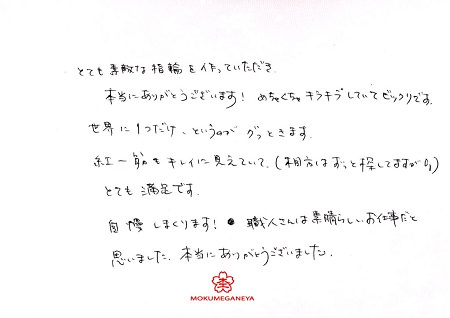 とても素敵な指輪を作っていただき
本当にありがとうございます! めちゃくちゃキラキラしていてビックリです。
世界に1つだけ、というのが グッときます。
紅一筋もキレイに見えていて、(相方はずっと探してますが
とても満足です。
自慢しまくります! 職人さんは素晴らしいお仕事だと
思いました。本当にありがとうございました。
MOKUMEGANEYA